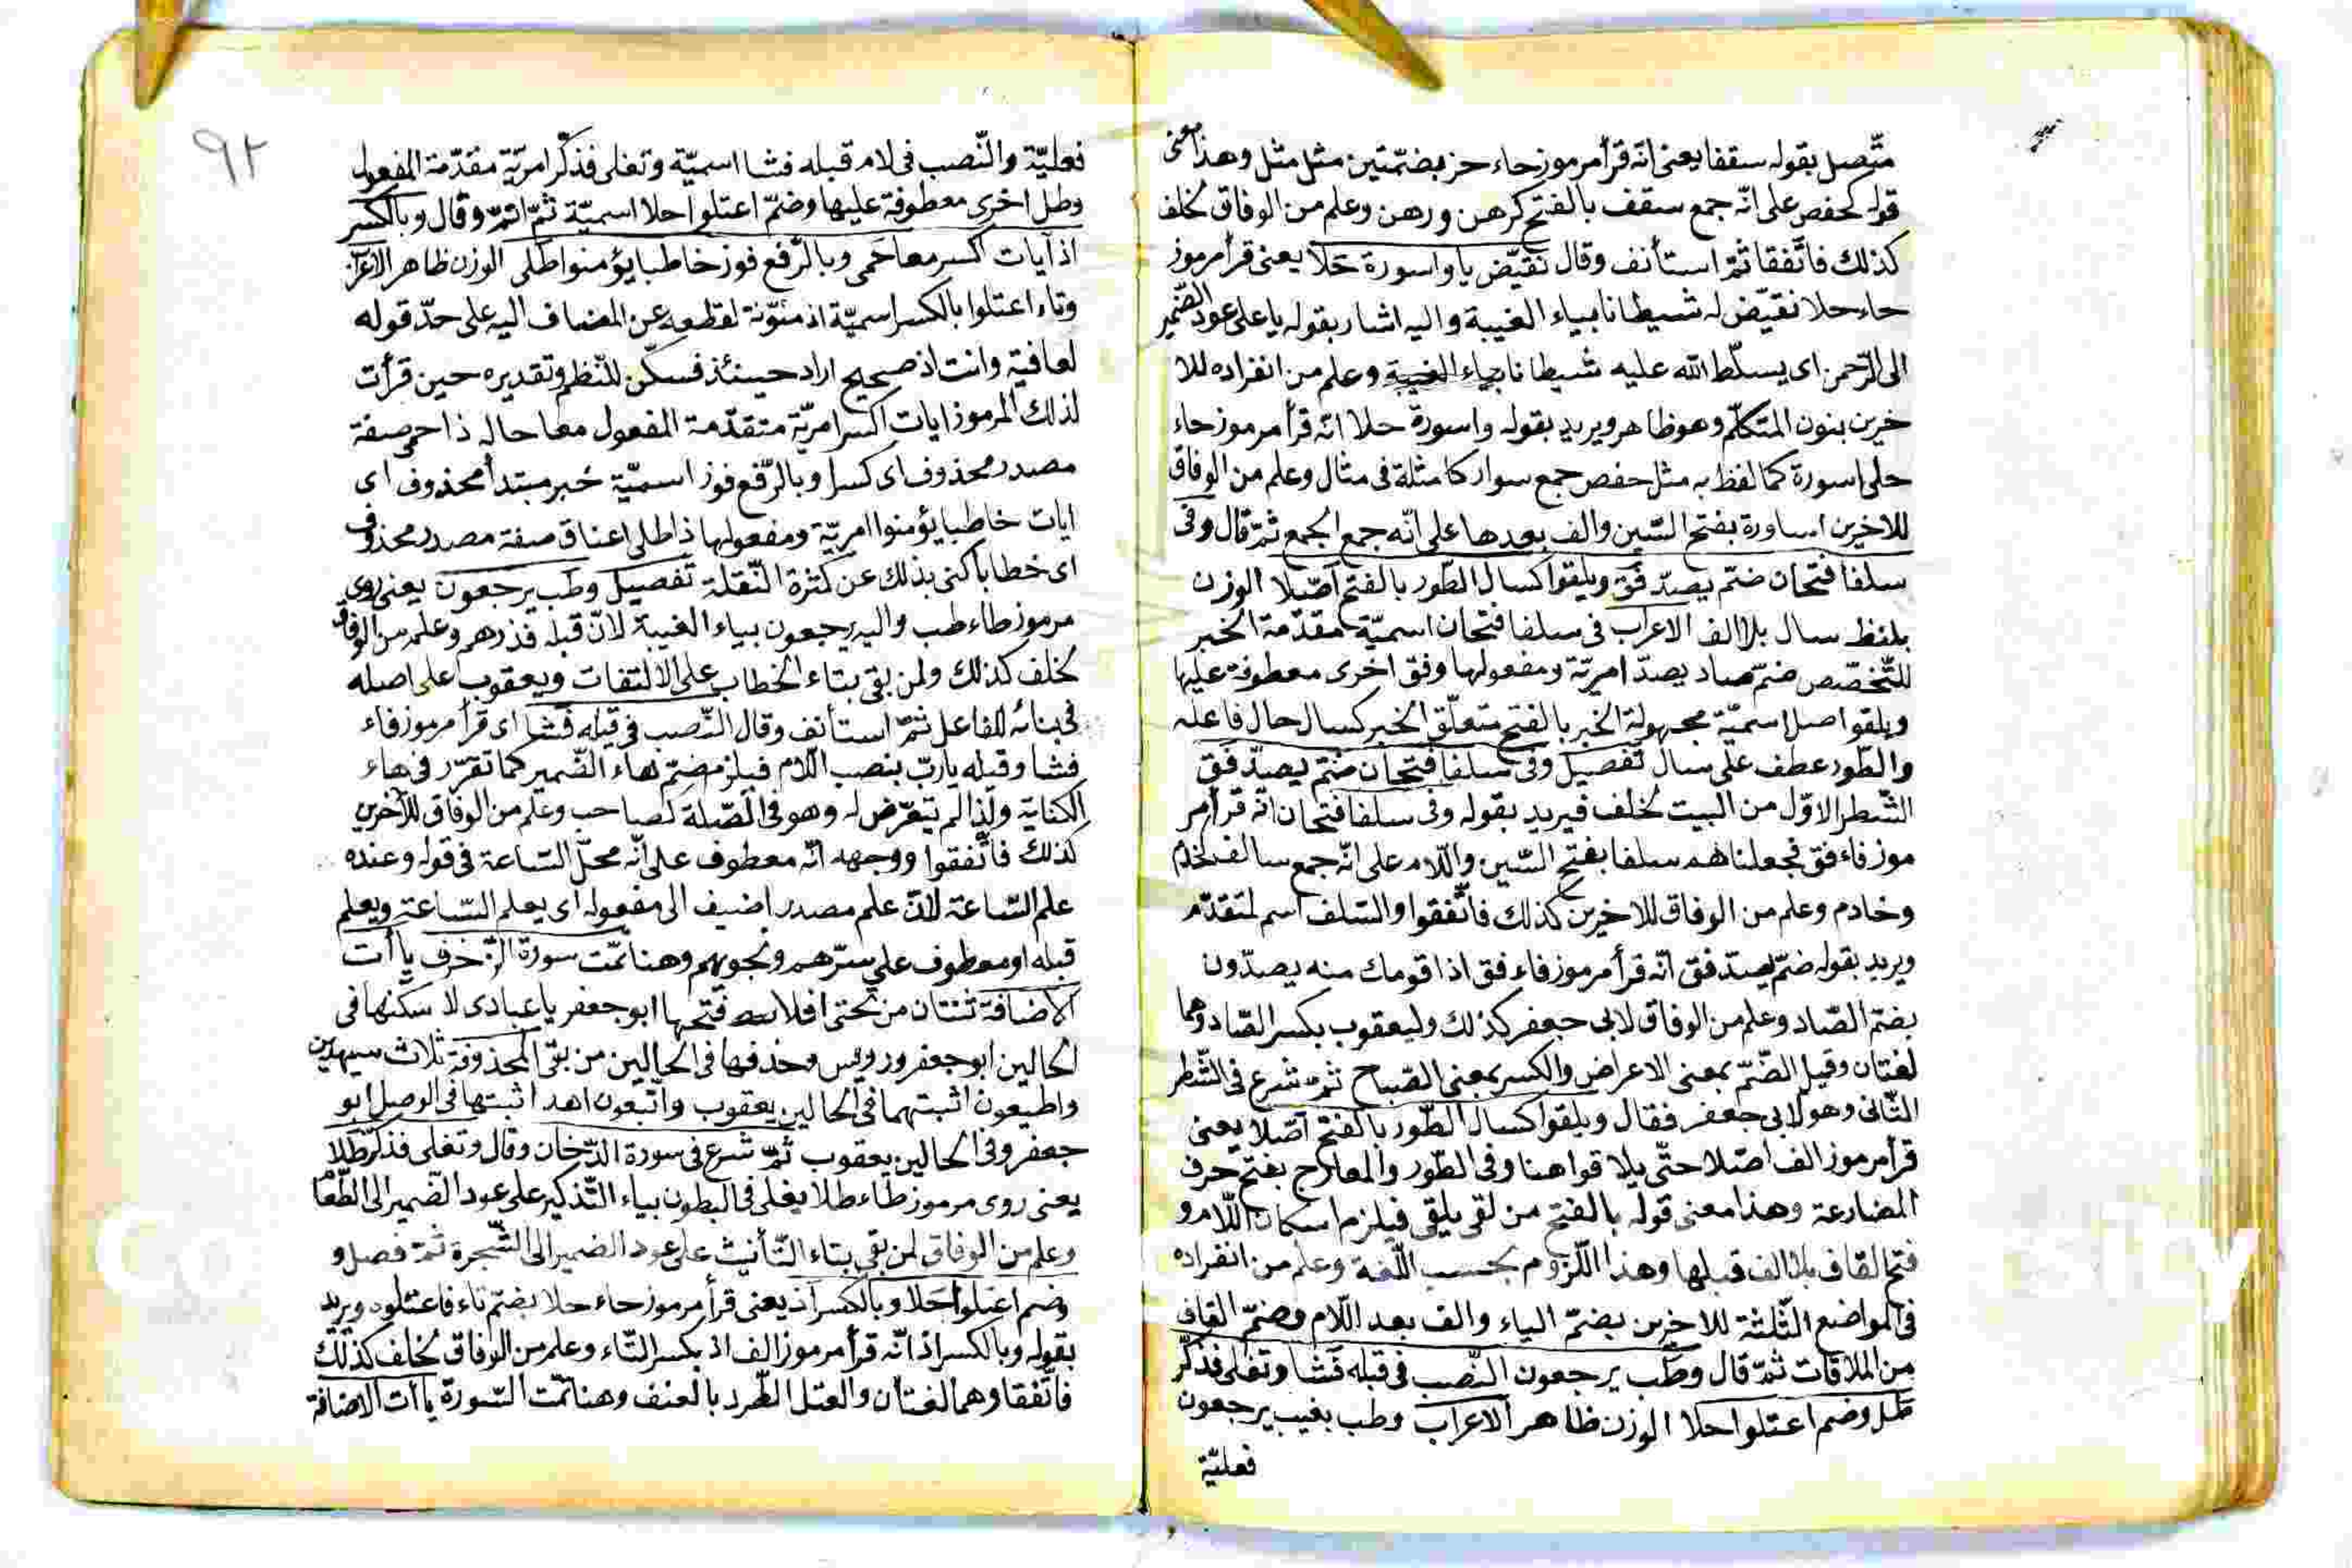 متّصل بقوله سقفا يعنى انّه قرأ مرموز حاء حز بضمّتين مثل مثل وهذا معنى
قوله كحفص على انّه جمع سقف بالفتح كرهن ورهن وعلم من الوفاق لخلف
كذلك فاتّفقا ثمّ استأنف وقال نقيّض يا واسورة حَلا يعنى قرأ مرموز
حاء حلا نقيّض له شيطانا بياء الغيبة واليه اشار بقوله يا على عود الضّمير
الى الرّحمن اى يسلّط الله عليه شيطانا بياء الغيبة وعلم من انفراده للا
خرين بنون المتكلّم وهو ظاهر ويريد بقوله واسورة حلا انّه قرأ مرموز حاء
حلى اسورة كما لفظ به مثل حفص جمع سوار كامثلة فى مثال وعلم من الوفاق
للاخرين اساورة بفتح السّين والف بعدها على انّه جمع الجمع ثمّ قال وفى
سلفا فتحان ضمّ يصدّ فق ويلقوا كسال الطّور بالفتح اصّلا الوزن
بلفظ سال بلا الف الاعراب فى سلفا فتحان اسميّة مقدّمة الخبر
للتّخصّص ضمّ صاد يصدّ امريّة ومفعولها وفق اخرى معطوفة عليها
ويلقوا اصل اسميّة مجهولة الخبر بالفتح متعلّق الخبر كسال حال فاعله
والطّور عطف على سال تفصيل وفى سلفا فتحان ضمّ يصدّ فق
الشّطر الاوّل من البيت لخلف فيريد بقوله وفى سلفا فتحان انّه قرأ مر
موز فاء فق فجعلناهم سلفا بفتح السّين واللّام على انّه جمع سالف كخدم
وخادم وعلم من الوفاق للاخرين كذلك فاتّفقوا والسّلف اسم لمتقدّم
ويريد بقوله ضمّ يصدّ فق انّه قرأ مرموز فاء فق اذا قومك منه يصدّون
بضمّ الصّاد وعلم من الوفاق لابى جعفر كذلك وليعقوب بكسر الصّاد وهما
لغتان وقيل الضّمّ بمعنى الاعراض والكسر بمعنى الصّياح ثمّ شرع فى الشّطر
الثّانى وهو لابى جعفر فقال ويلقوا كسال الطّور بالفتح اصّلا يعنى
قرأ مرموز الف اصّلا حتّى يلاقوا هنا وفى الطّور والمعارج بفتح حرف
المضارعة وهذا معنى قوله بالفتح من لقى يلقى فيلزم اسكان اللّام و
فتح القاف بلا الف قبلها وهذا اللّزوم بحسب اللّغة وعلم من انفراده
فى المواضع الثّلثة للاخرين بضمّ الياء والف بعد اللّام وضمّ القاف
من الملاقات ثمّ قال وطب يرجعون النّصب فى قبله فشا وتغلى فذكّر
طل وضم اعتلوا حلا الوزن ظاهر الاعراب وطب بغيب يرجعون
فعليّة
٩٢
فعليّة والنّصب فى لام قبله فشا اسميّة وتغلى فذكّر امريّة مقدّمة المفعول
وطل اخرى معطوفة عليها وضمّ اعتلوا حلا اسميّة ثمّ اتمّ وقال وبالكسر
اذ آيات اكسر معا حمى وبالرّفع فوز خاطبا يؤمنوا طلى الوزن ظاهر الاعراب
وتاء اعتلوا بالكسر اسميّة اذ منوّنة لقطعه عن المضاف اليه على حدّ قوله
لعافية وانت اذ صحيح اراد حينئذ فسكّن للنّظم وتقديره حين قرأت
لذلك المرموز ايات اكسر امريّة متقدّمة المفعول معا حاله ذا حمى صفة
مصدر محذوف اى كسرا وبالرّفع فوز اسميّة خبر مبتدأ محذوف اى
ايات خاطبا يؤمنوا امريّة ومفعولها ذا طلى اعناق صفة مصدر محذوف
اى خطابا كنى بذلك عن كثرة النّقلة تفصيل وطب يرجعون يعنى روى
مرموز طاء طب واليه يرجعون بياء الغيبة لانّ قبله فذرهم وعلم من الوفاق
لخلف كذلك ولمن بقى بتاء الخطاب على الالتفات ويعقوب على اصله
فى بنائه للفاعل ثمّ استأنف وقال النّصب فى قيله فشا اى قرأ مرموز فاء
فشا وقيله يا ربّ بنصب اللّام فيلزم ضمّ هاء الضّمير كما تقرّر فى هاء
الكناية ولذا لم يتعرّض له وهو فى الصّلة كصاحب وعلم من الوفاق للآخرين
كذلك فاتّفقوا ووجهه انّه معطوف على انّه محلّ السّاعة فى قوله وعنده
علم السّاعة لانّ علم مصدر اضيف الى مفعوله اى يعلم السّاعة ويعلم
قبله او معطوف على سرّهم ونجويهم وهنا تمّت سورة الزّخرف ياأت
الاضافة ثنتان من تحتى افلا فتحها ابو جعفر يا عبادى لا سكنها فى
الحالين ابو جعفر ورويس وحذفها فى الحالين من بقى المحذوفة ثلاث سيهدين
واطيعون اثبتهما فى الحالين يعقوب واتّبعون اهد اثبتها فى الوصل ابو
جعفر وفى الحالين يعقوب ثمّ شرع فى سورة الدّخان وقال وتغلى فذكّر طلا
يعنى روى مرموز طاء طلا يغلى فى البطون بياء التّذكير على عود الضّمير الى الطّعام
وعلم من الوفاق لمن بقى بتاء التّأنيث على عود الضمير الى الشّجرة ثمّ فصل و
وضم اعتلوا حلا وبالكسر اذ يعنى قرأ مرموز حاء حلا بضمّ تاء فاعتلوه ويريد
بقوله وبالكسر اذ انّه قرأ مرموز الف اذ بكسر التّاء وعلم من الوفاق لخلف كذلك
فاتّفقا وهما لغتان والعتل الطّرد بالعنف وهنا تمّت السّورة ياأت الاضافة